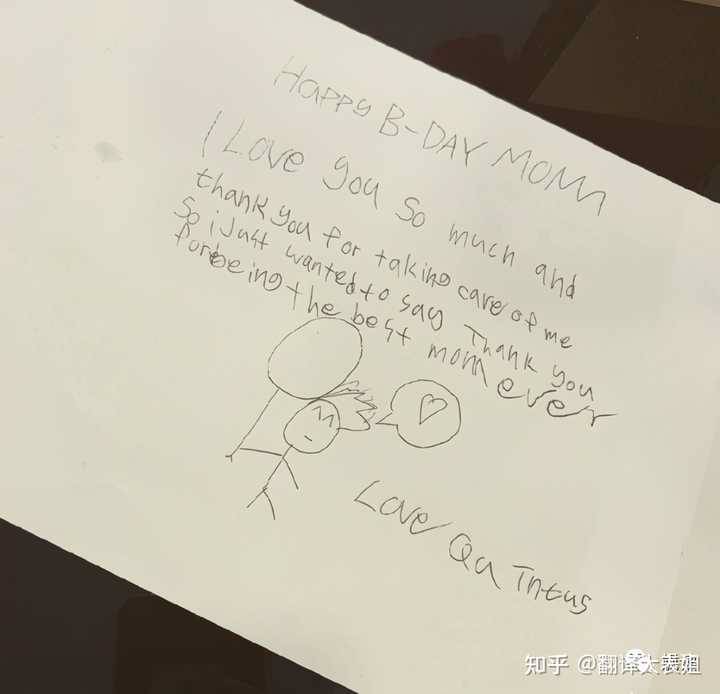 Happy B-DAY MOM
I Love you so much and
thank you for taking care of me
So i Just wanted to say Thank you
for being the best mom ever
Love Quintus
知乎 @翻译大表姐